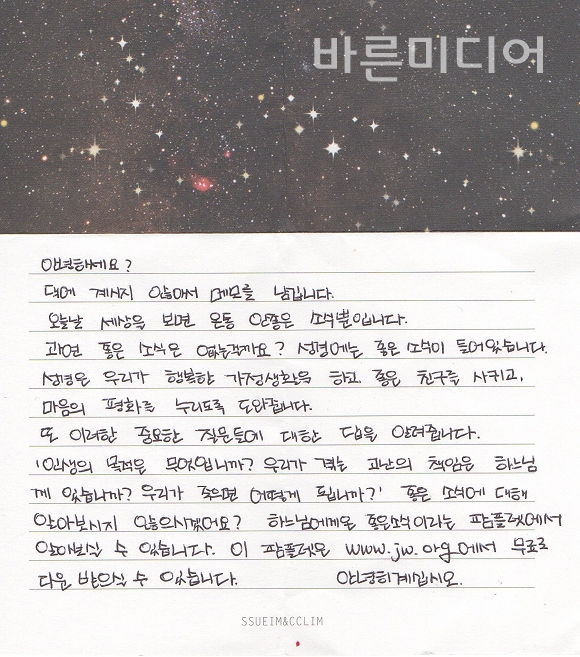 바른미디어
안녕하세요?
댁에 계시지 않아서 메모를 남깁니다.
오늘날 세상을 보면 온통 안좋은 소식뿐입니다.
과연 좋은 소식은 없는걸까요? 성경에는 좋은 소식이 들어있습니다.
성경은 우리가 행복한 가정생활을 하고, 좋은 친구를 사귀고,
마음의 평화를 누리도록 도와줍니다.
또 이러한 중요한 질문들에 대한 답을 알려줍니다.
'인생의 목적은 무엇입니까? 우리가 겪는 고난의 책임은 하느님
께 있습니까? 우리가 죽으면 어떻게 됩니까?' 좋은 소식에 대해
알아보시지 않으시겠어요? 하느님에게온 좋은소식이라는 팜플렛에서
알아보실 수 있습니다. 이 팜플렛은 www.jw.org에서 무료로
다운 받으실 수 있습니다. 안녕히계십시오.
SSUEIM&CCLIM